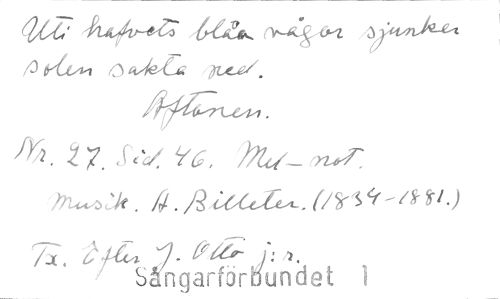 Uti hafvets blåa vågor sjunker
solen sakta ned.
Aftonen.
Nr. 27. Sid. 46. Mel-not.
Musik. A. Billeter. (1834-1881.)
Tx. Efter J. Otto j:r.
Sångarförbundet 1